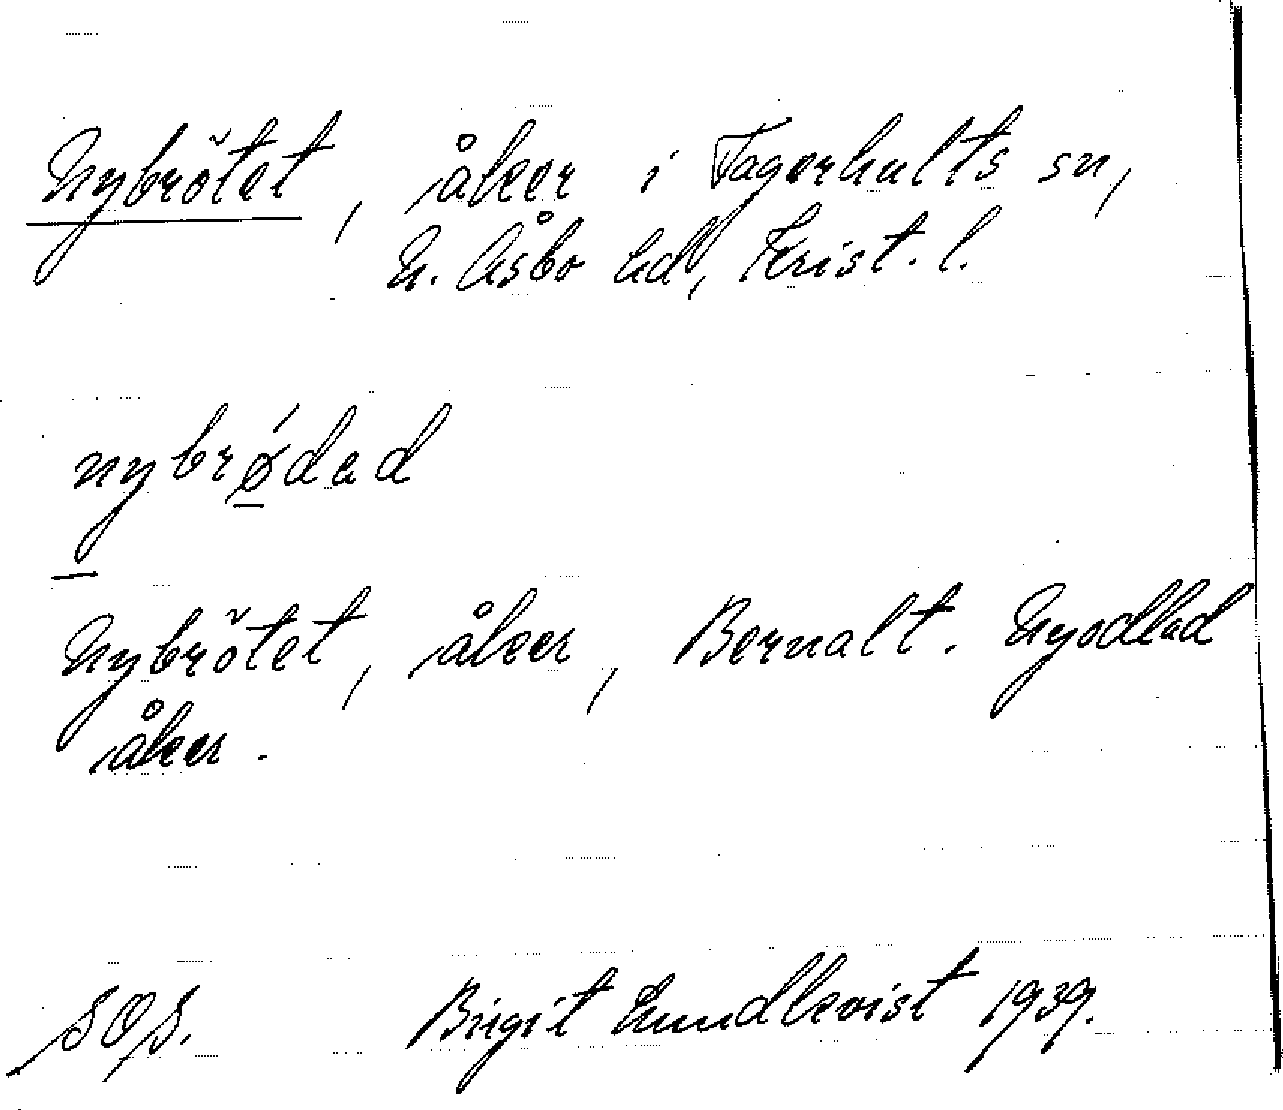 Nybrötet, åker i Fagerhults sn,
N. Åsbo hd, Krist. l.
nybrǿdad
Nybrötet, åker, Bernalt. Nyodlad
åker.
SOS. Birgit Lundkvist 1939.